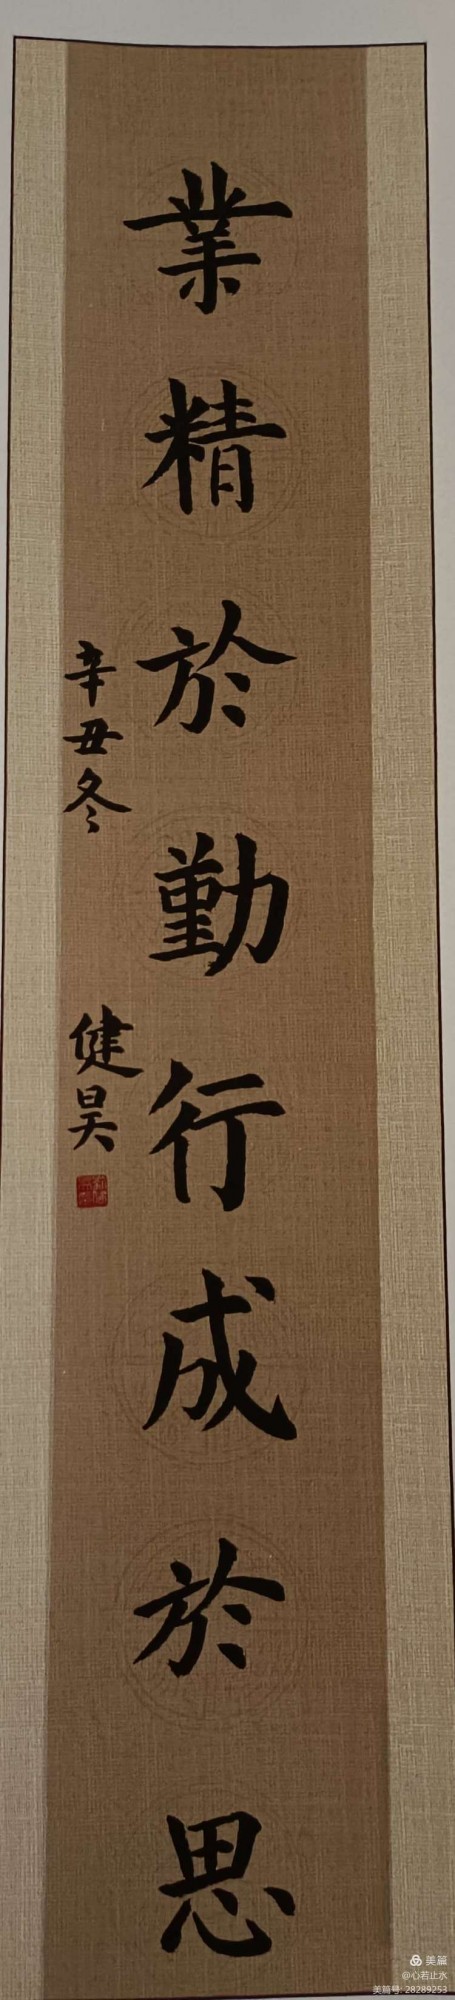 業精於勤行成於思
辛丑冬 健昊
美篇
@心若止水
美篇号: 28289253